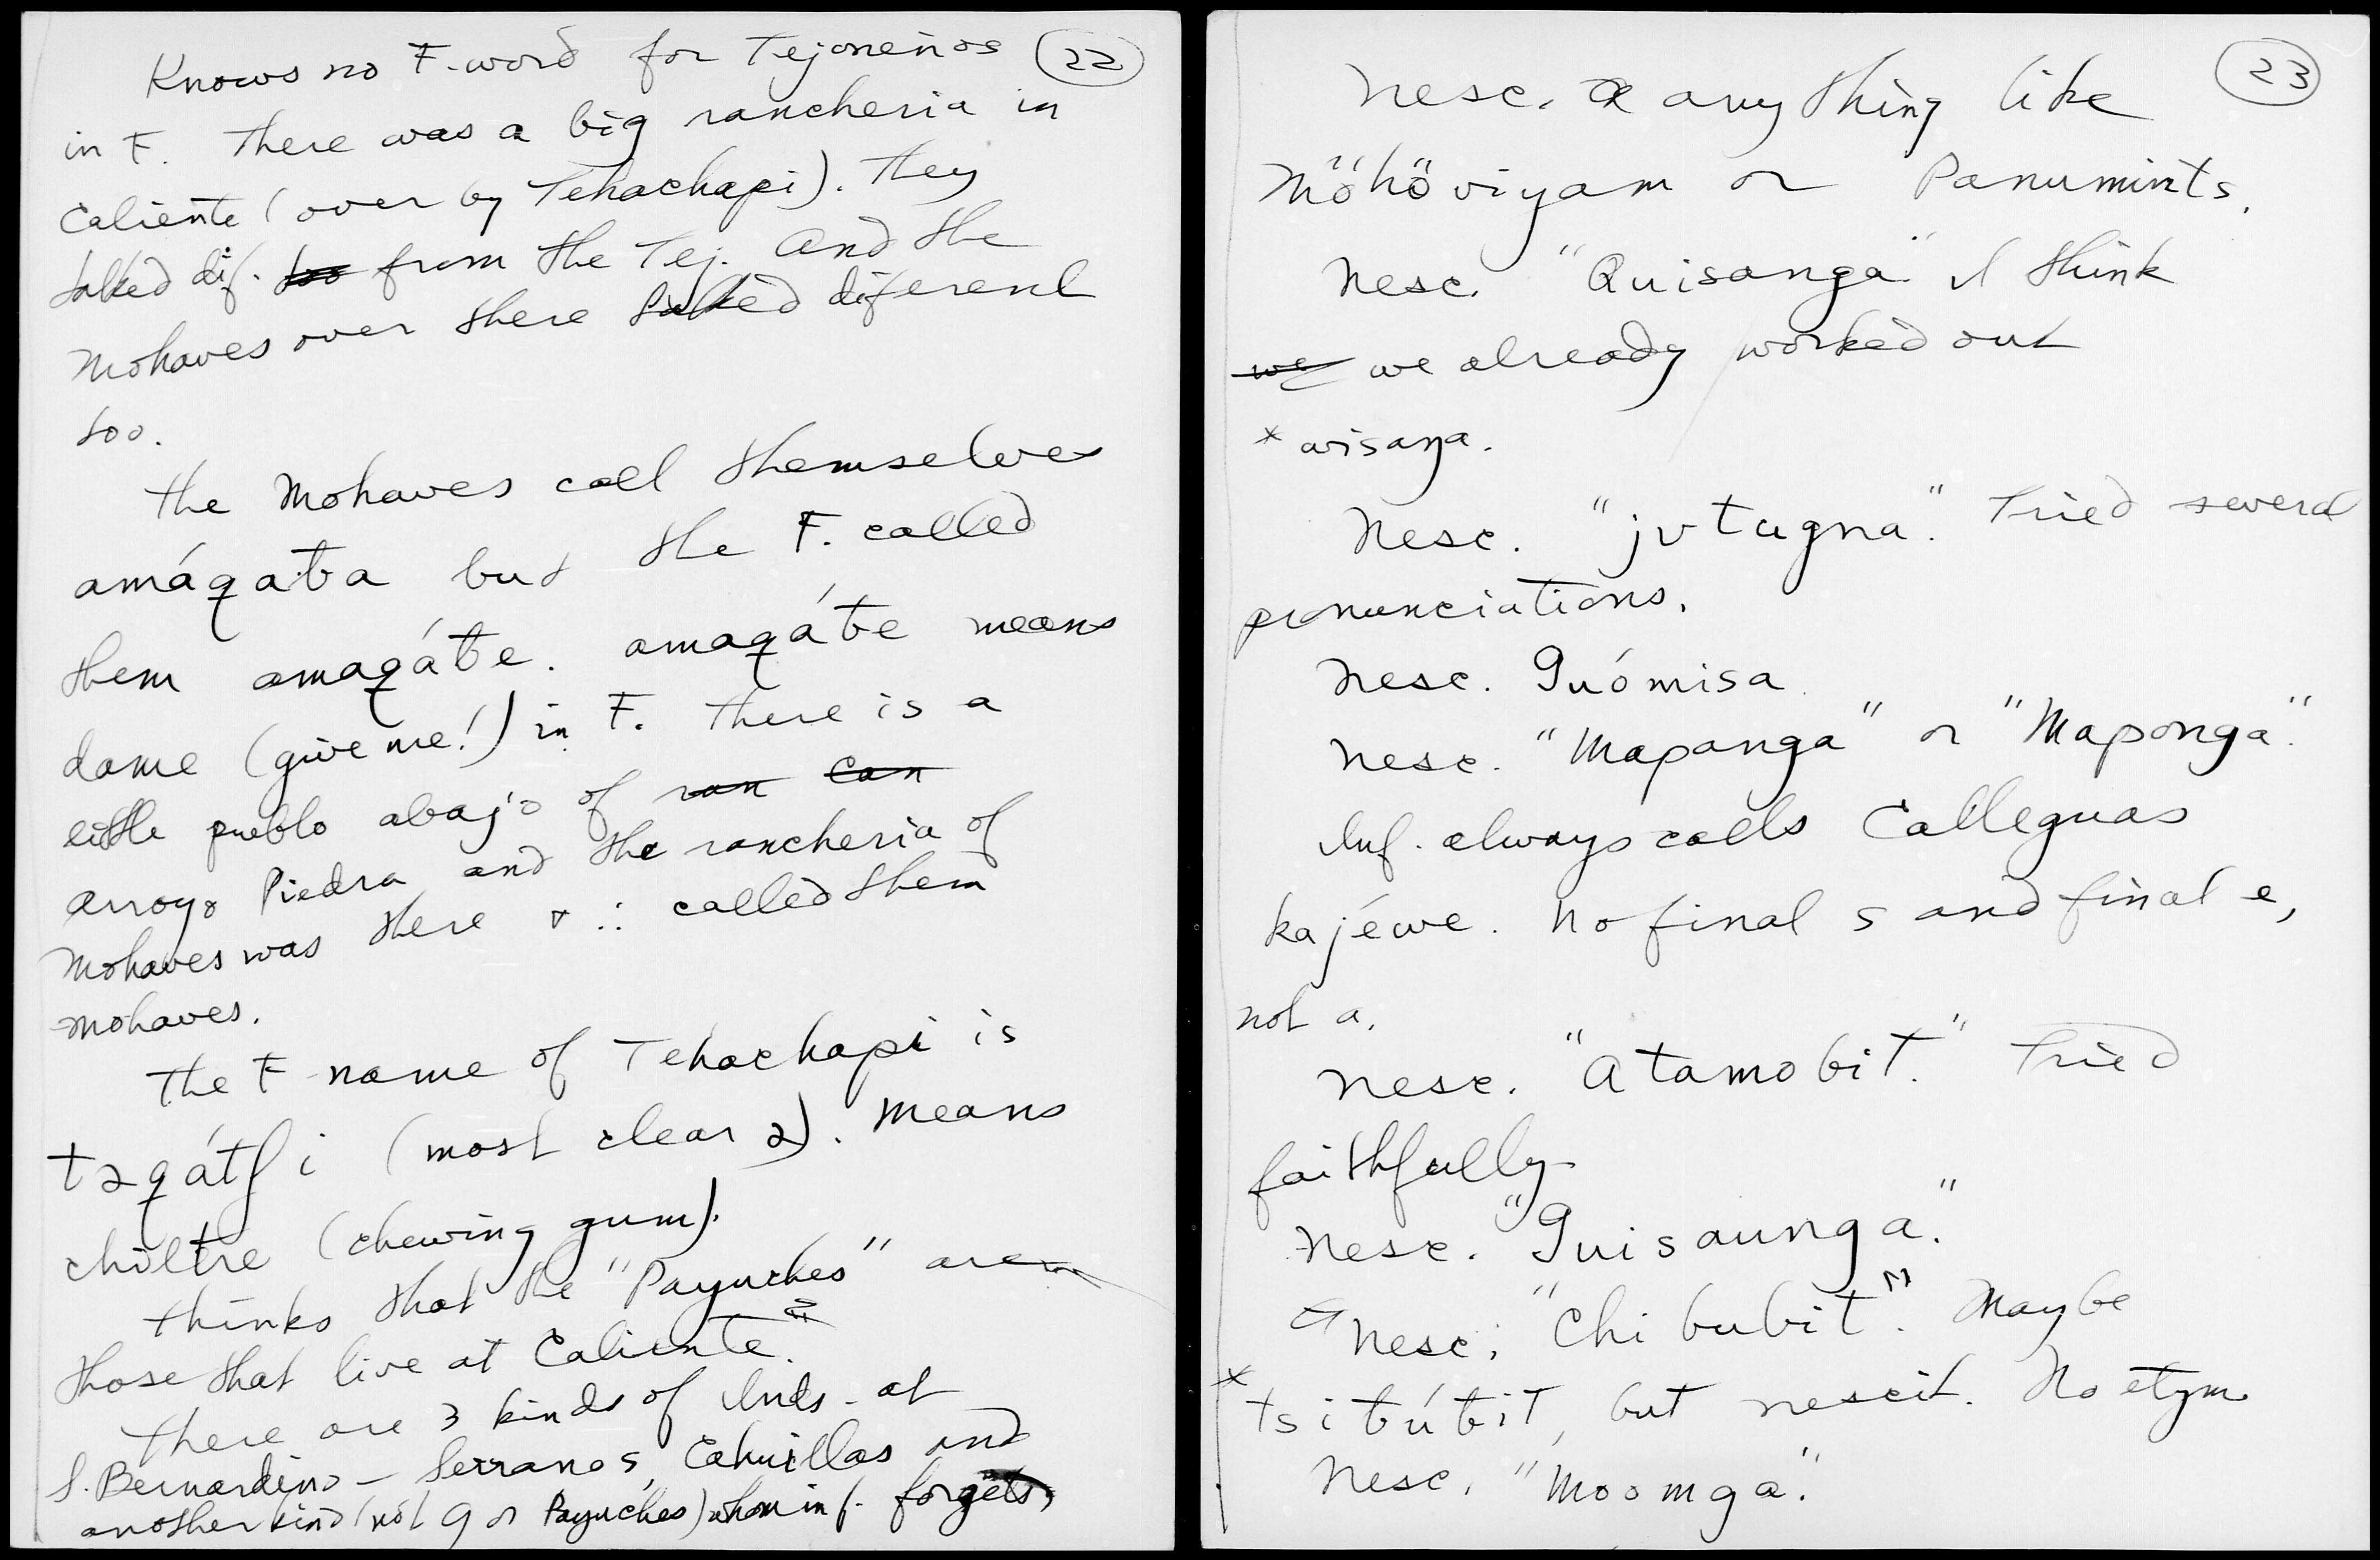 (22)
Knows no F. word for Tejoneños
in F. There was a big rancheria in
Caliente (over by Tehachapi). They
talked dif. too from the Tej. And the
Mohaves over there talked diferent
too.
The Mohaves call themselves
amáqaƀa but the F. called
them amaqáƀe. amaqáƀe means
dame (give me!) in F. There is a
little pueblo abajo of ran Can
Arroyo Piedra and the rancheria of
Mohaves was there & ∴ called them
Mohaves.
The F name of Tehachapi is
tɔqátʃi (most clear ɔ). Means
chiltre (chewing gum).
Thinks that the "Payuches" are
those that live at Caliente.
There are 3 kinds of Inds. at
S. Bernardino – Serranos, Cahuillas and
another kind (not G or Payuches) whom inf. forgets,
(23)
Nesc. anything like
Möhöviyam or Panumints.
Nesc. "Quisanga" I think
we we already worked out
* wisaŋa.
Nesc. "jvtugna." Tried several
pronunciations.
Nesc. Guómisa
Nesc. "Mapanga" or "Maponga."
Inf. always calls Calleguas
kajéwe. No final s and final e,
not a.
Nesc. "Atamobit." Tried
faithfully
Nesc. "Guisaunga."
Nesc. "Chibubit". Maybe
* tsiƀúƀit, but nescit. No etym
Nesc. "Moomga."